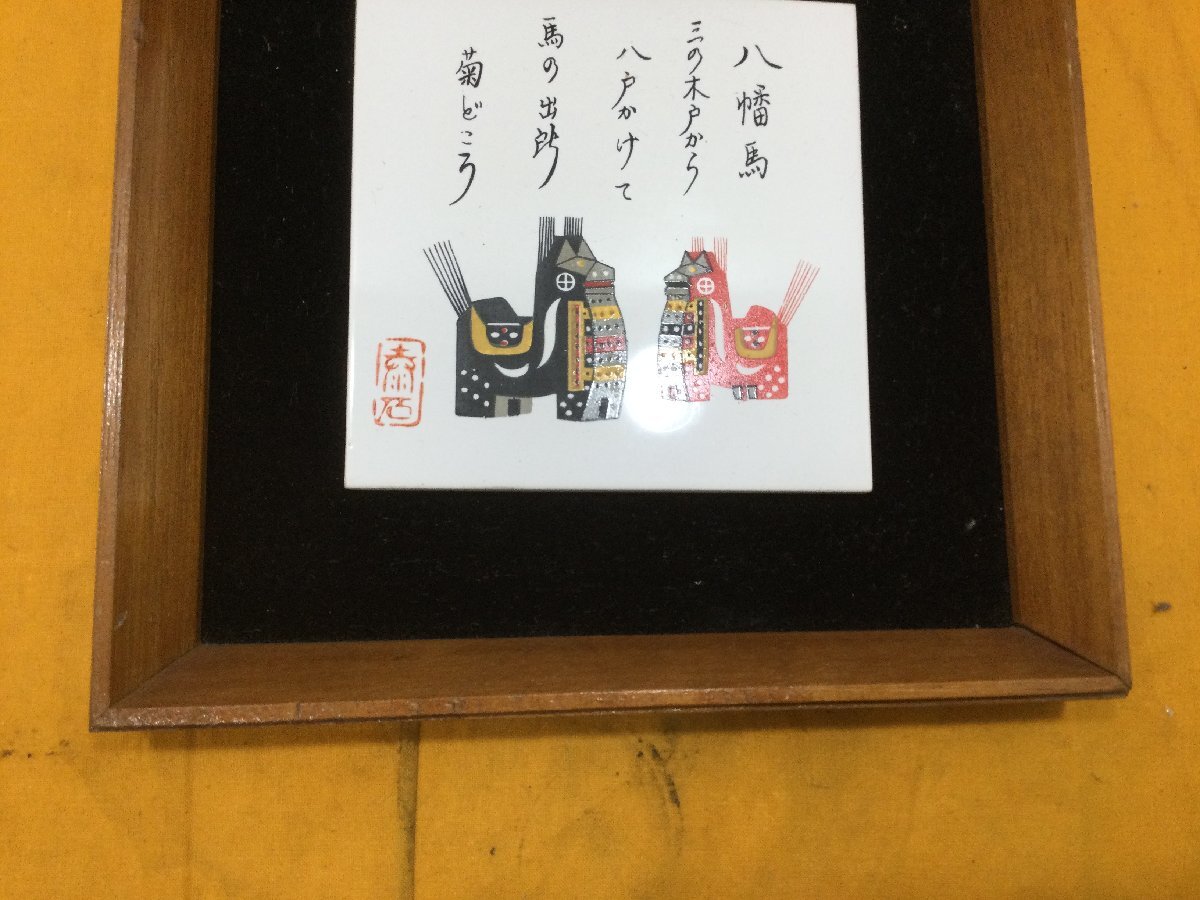 八幡馬
三の木戸から
八戸かけて
馬の出所
菊どころ
泰石